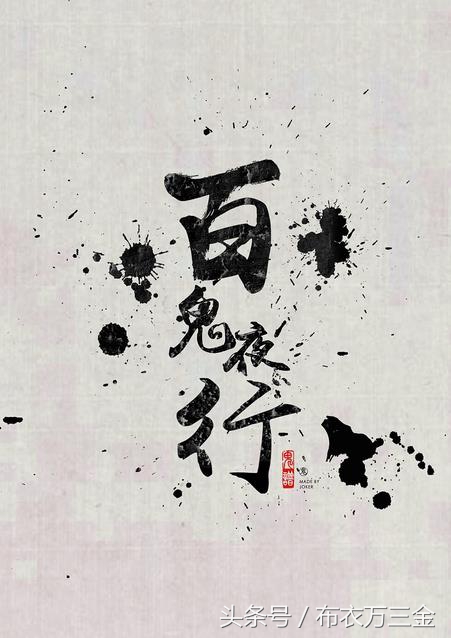 百
鬼夜
行
鬼譜
MADE BY
JOKER
头条号 / 布衣万三金